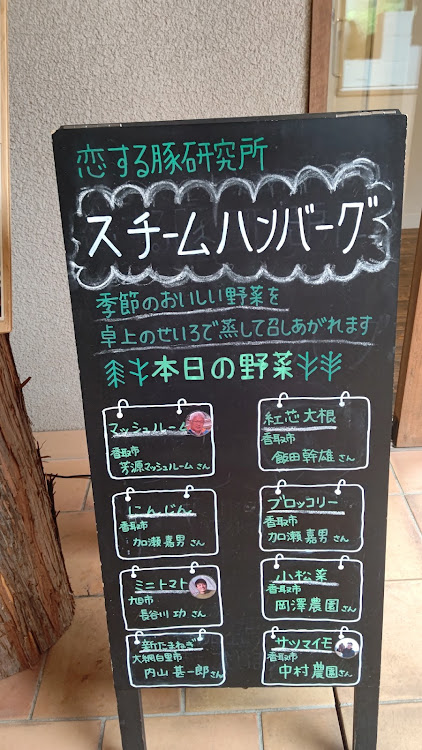 恋する豚研究所
スチームハンバーグ
季節のおいしい野菜を
卓上のせいろで蒸して召しあがれます
本日の野菜
マッシュルーム
香取市
芳源マッシュルームさん
紅芯大根
香取市
飯田幹雄さん
にんじん
香取市
加瀬嘉男さん
ブロッコリー
香取市
加瀬嘉男さん
ミニトマト
旭市
長谷川功さん
小松菜
香取市
岡澤農園さん
新たまねぎ
大網白里市
内山甚一郎さん
サツマイモ
香取市
中村農園さん